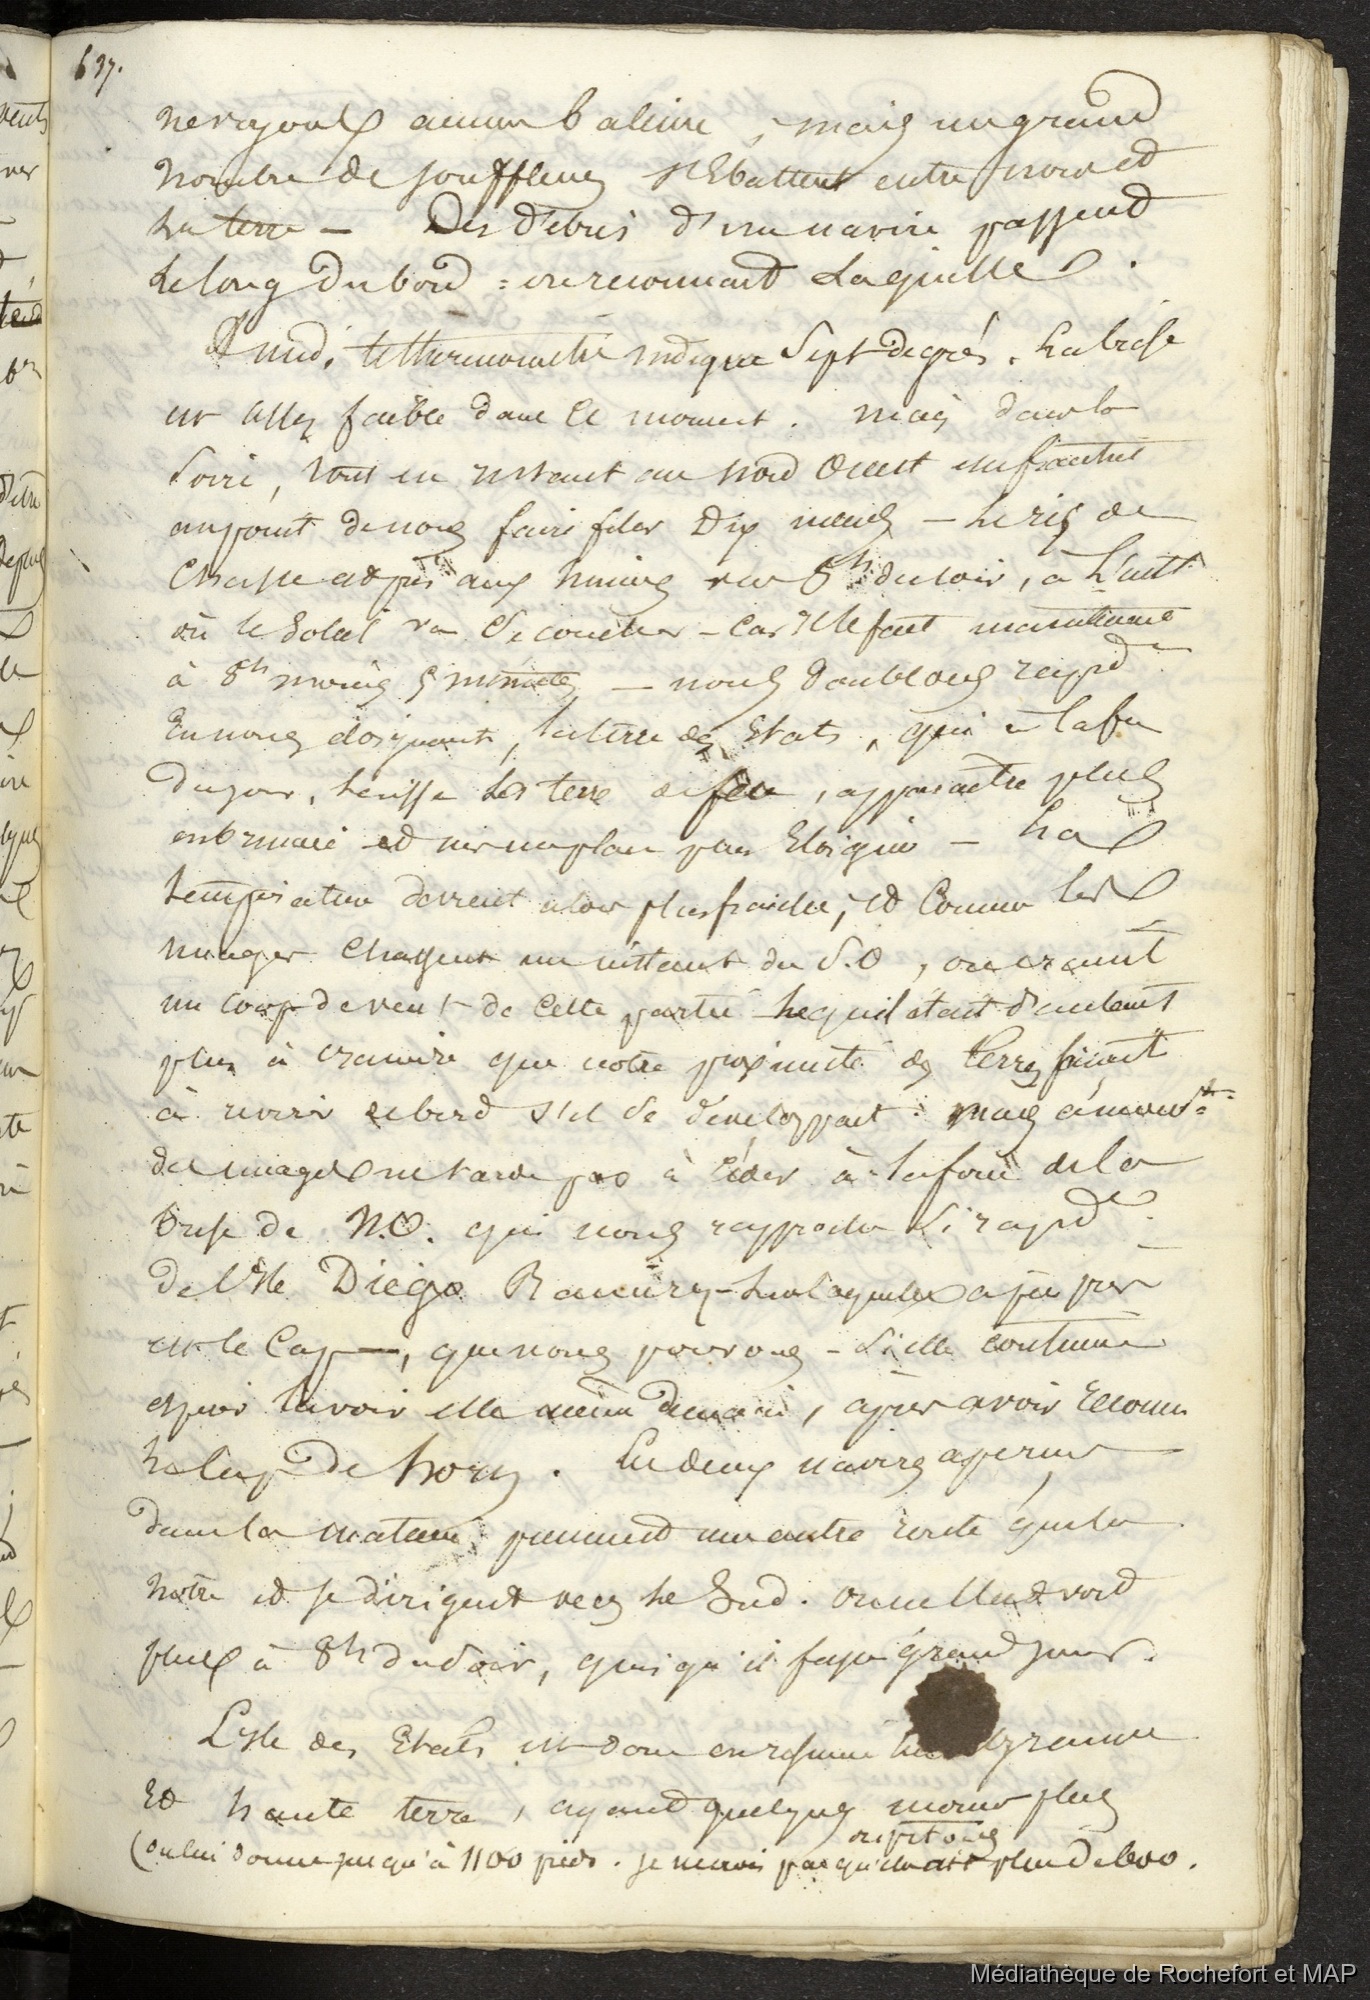 637.
ne voyons aucune baleine, mais un grand
nombre de souffleurs s'Ebattent entre nous et
la terre — Des débris d'un navire passent
le long du bord : on reconnait la quille.
A midi le thermomètre indique Sept degrés. La brise
est assez faible dans ce moment. mais dans la
soirée, tout en restant au Nord Ouest
au point de nous faire filer Dix nœuds — le ris de
Chasse est pris aux huniers vers 8h du soir, à l'inst.
où le Soleil va se coucher — Car il le fait maintenant
à 8h moins 5 minutes — nous doublons rapid
En nous éloignant, la terre des Etats, qui à la fin
du jour, la terre de feu, apparaitre plus
et sur un plan plus Eloigné — La
température devient alors plus fraîche, et Comme les
nuages Chassent un instant du S.O, on craint
un Coup de vent de Cette partie lequel étant d'autant
plus à craindre que notre proximité des terres
à virer de bord s'il se développait. mais
des nuages ne tarde pas à Céder à la force de la
brise de N.O. qui nous rapproche si rapid.
de l'Isle Diégo Ramirez — sur laquelle a peu près
est le Cap —, que nous pouvons — si elle continue
espérer la voir elle même demain, après avoir reconnu
le Cap de horn. Les deux navires aperçus
dans la matinée prennent une autre route que la
notre et se dirigent vers le Sud. on ne les voit
plus à 8h du Soir, quoiqu'il fasse grand jour.
L'Isle des Etats est donc en résumé
Et haute terre, ayant quelques mornes plus
(on lui donne jusqu'à 1100 pieds. je ne crois pas qu'elle ait plus de 600.